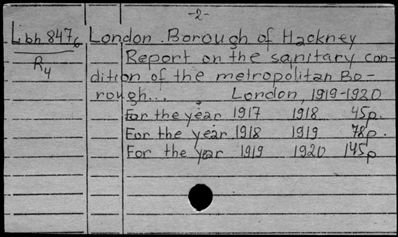 -2-
Libh 8476 London. Borough of Hackney
R4 Report on the sanitary con=
dition of the metropolitan Bo-
rough... London, 1919-1920
For the year 1917 1918 45p.
For the year 1918 1919 78p.
For the year 1919 1920 145p